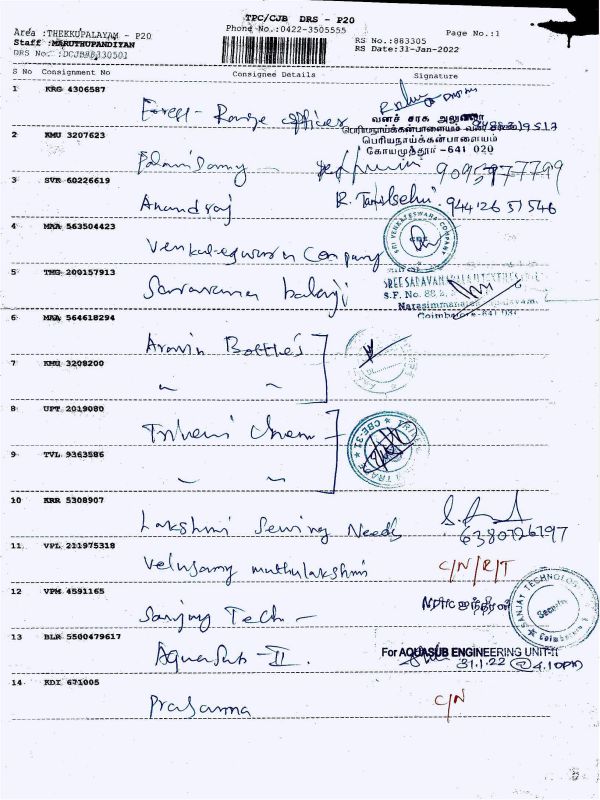 TPC/CJB DRS - P20
Area :THEKKUPALAYAM - P20
Phone No.:0422-3505555
Page No.:1
Staff :MARUTHUPANDIYAN
RS No.:883305
DRS No. :DCJB88330501
RS Date:31-Jan-2022
S No Consignment No Consignee Details Signature
1 KRG 4306587
Forest - Range officer
வனச் சரக அலுவலர்
பெரியநாய்க்கன்பாளையம் வனச்சரகம்
பெரியநாய்க்கன்பாளையம்
கோயமுத்தூர் -641 020
2 KMU 3207623
Palanisamy
3 SVR 60226619
Anandraj R. Tamilselvi 9442651546
4 MAA 563504423
Venkateswara Company
SRI VENKATESWARA COMPANY
5 TMG 200157913
Saravana balaji
S.F. No. 88,2,
Narasimmanaickenpalayam
Coimbatore-641 031
6 MAA 564618294
Aravin Bottles
7 KMU 3208200
〃 〃
8 UPT 2019080
Triveni Chem -
CBE-31
9 TVL 9363586
〃 〃
10 KRR 5308907
Lakshmi Sewing Needs 6380726797
11 VPL 211975318
Velusamy muthulakshmi C/N/R/T
12 VPM 4591165
Sanjay Tech -
SANJAY TECHNOLOG
Security
Coimbatore
13 BLR 5500479617
Aquasub - II.
For AQUASUB ENGINEERING UNIT-II
31.1.22 @ 4.10PM
14 KDI 671005
Prasanna C/N